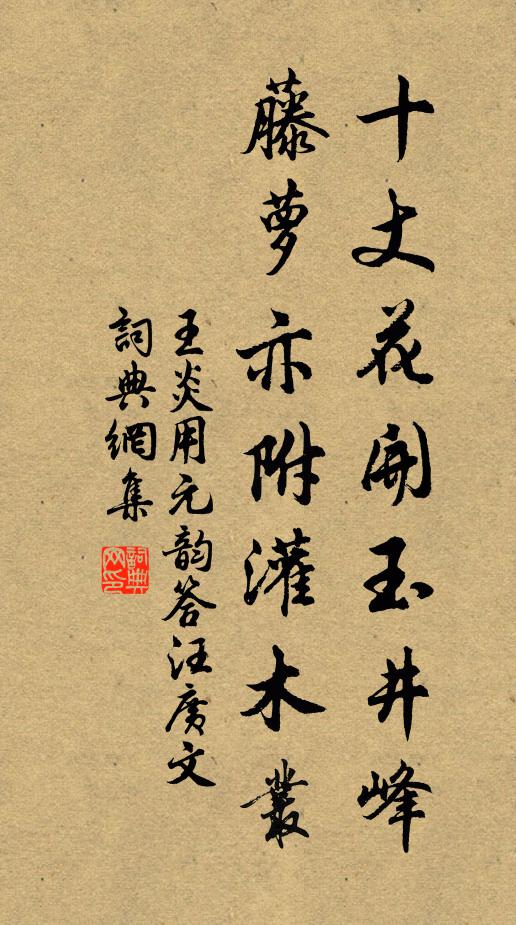 十丈花開玉井峰
藤萝亦附灌木叢
王炎用元韵答汪廣文
詞典網集
詞典網印